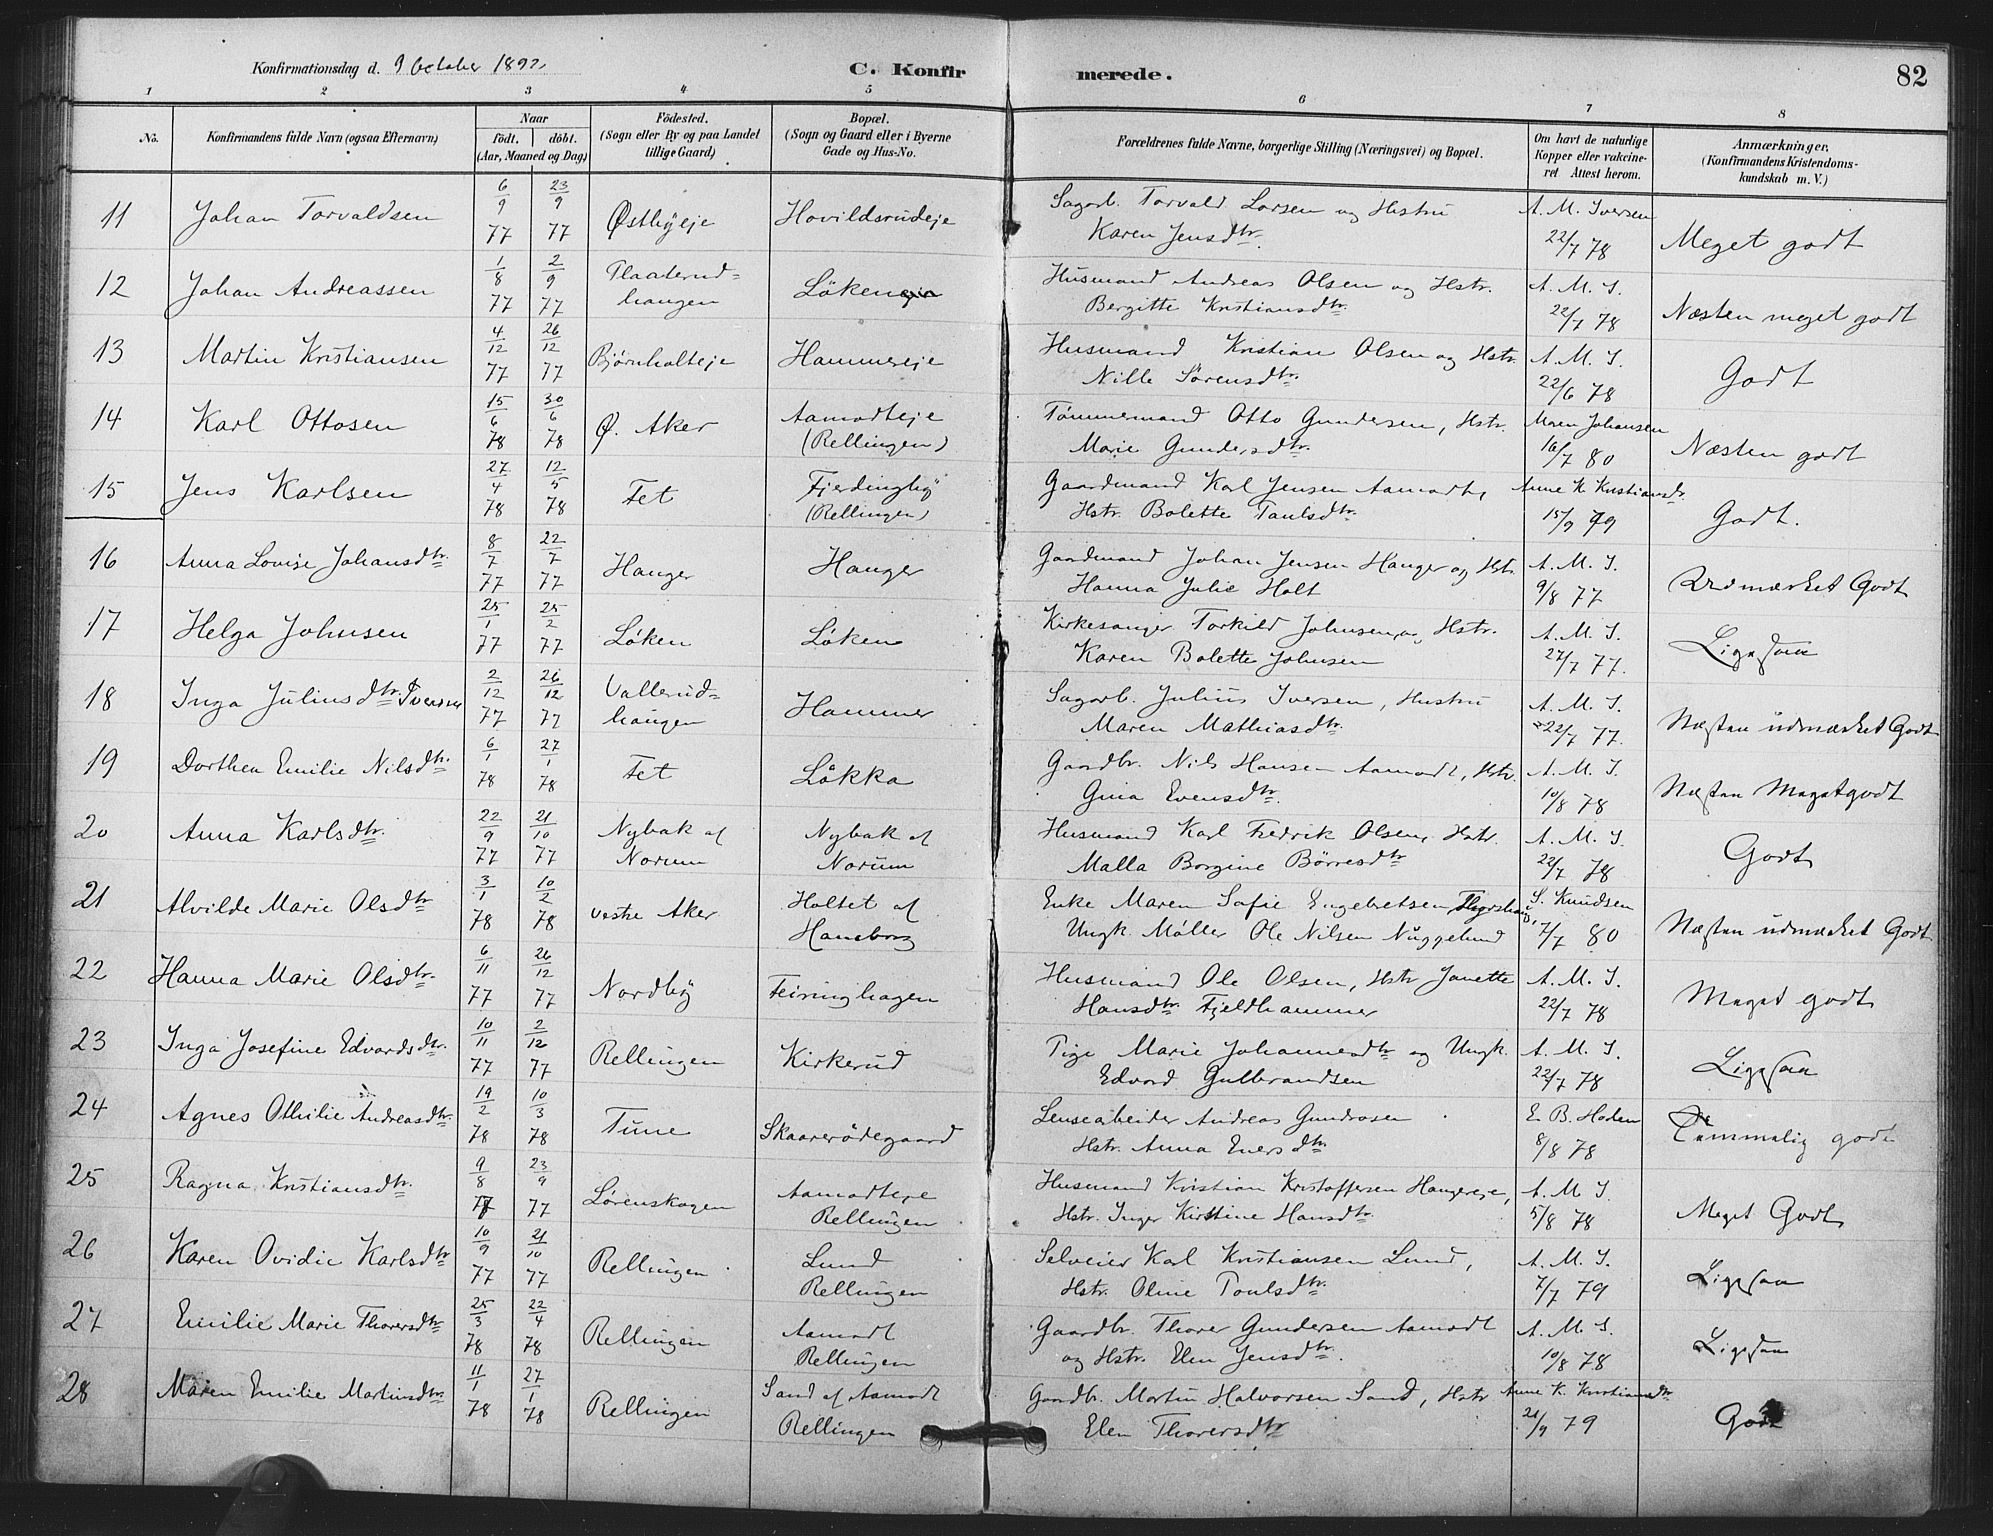 Konfirmationsdag d. 9 October 1892. C. Konfirmerede. 82
1 2 3 4 5 6 7 8
No. Konfirmandens fulde Navn (ogsaa Efternavn) Naar født. døbt. (Aar, Maaned og Dag) Fødested. (Sogn eller By og paa Landet tillige Gaard) Bopæl. (Sogn og Gaard eller i Byerne Gade og Hus-No. Forældrenes fulde Navne, borgerlige Stilling (Næringsvei) og Bopæl. Om havt de naturlige Kopper eller vakcineret Attest herom. Anmærkninger. (Konfirmandens Kristendomskundskab m. V.)
11 Johan Torvaldsen 6/9 77 23/9 77 Østbyeje Hovildsrudeje Sagarb. Torvald Larsen og Hstru Karen Jensdtr. A. M. Iversen 22/7 78 Meget godt
12 Johan Andreassen 1/8 77 2/9 77 Flaaterudhaugen Løken Husmand Andreas Olsen og Hstr. Bergitte Kristiansdtr. A. M. I. 22/7 78 Næsten meget godt
13 Martin Kristiansen 4/12 77 26/12 77 Bjørnholteje Hammereje Husmand Kristian Olsen og Hstr. Nille Sørensdtr. A. M. I. 22/6 78 Godt
14 Karl Ottosen 15/6 78 30/6 78 Ø. Aker Aamodteje (Rellingen) Tømmermand Otto Gundersen, Hstr. Marie Gundersdtr. Maren Johansen 16/7 80 Næsten godt
15 Jens Karlsen 27/4 78 12/5 78 Fet Fjerdingby (Rellingen) Gaardmand Karl Jensen Aamodt, Hstr. Bolette Paulsdtr. Anne K. Kristiansdtr. 15/9 79 Godt.
16 Anna Lovise Johansdtr. 8/7 77 22/7 77 Hauger Hauger Gaardmand Johan Jensen Hauger og Hstr. Hanna Julie Holt A. M. I. 9/8 77 Udmærket Godt
17 Helga Johnsen 25/1 77 25/2 77 Løken Løken Kirkesanger Torkild Johnsen og Hstr. Karen Bolette Johnsen A. M. I. 27/7 77. Ligesaa
18 Inga Juliusdtr. Iversen 2/12 77 26/12 77 Vallerudhaugen Hammer Sagarb. Julius Iversen, Hustru Maren Mathiasdtr. A. M. I. 22/7 77. Næsten udmærket Godt
19 Dorthea Emilie Nilsdtr. 6/1 78 27/1 78 Fet Løkka Gaardbr. Nils Hansen Aamodt, Hstr. Gina Evensdtr. A. M. I. 10/8 78 Næsten Megetgodt
20 Anna Karlsdtr. 22/9 77 21/10 77 Nybak af Norum Nybak af Norum Husmand Karl Fredrik Olsen, Hstr. Malla Borgine Børresdtr A. M. I. 22/7 78 Godt
21 Alvilde Marie Olsdtr 3/1 78 10/2 78 Vestre Aker Holtet af Haneborg Enke Maren Sofie Engebretsen Ungk. Møller Ole Nilsen S. Knudsen 7/7 80 Næsten udmærket Godt
22 Hanna Marie Olsdtr. 6/11 77 26/12 77 Nordby Feiringhagen Husmand Ole Olsen, Hstr Janette Hansdtr. Fjeldhammer A. M. I. 22/7 78 Meget godt
23 Inga Josefine Edvardsdtr. 10/11 77 2/12 77 Rellingen Kirkerud Pige Marie Johannesdtr og Ungk. Edvard Gulbrandsen A. M. I. 22/7 78 Ligesaa
24 Agnes Othilie Andreasdtr. 19/2 78 10/3 78 Tune Skaarerødegaard Lensearbeider Andreas Gundrosen Hstr. Anna Enersdtr E. B. Holen 8/8 78 Temmelig godt
25 Ragna Kristiansdtr. 9/8 77 23/9 77 Lørenskogen Aamodteje Rellingen Husmand Kristian Kristoffersen Haugereje, Hstr. Inger Kirstine Hansdtr. A. M. I 5/8 78 Meget Godt
26 Karen Ovidie Karlsdtr 10/9 77 21/10 77 Rellingen Lund Rellingen Selveier Karl Kristiansen Lund, Hstr. Oline Poulsdtr. A. M. I. 7/7 79 Ligesaa
27 Emilie Marie Thorersdtr 25/3 78 22/4 78 Rellingen Aamodt Rellingen Gaardbr. Thorer Gundersen Aamodt og Hstr. Elen Jensdtr. A. M. I. 10/8 78 Ligesaa
28 Maren Emilie Martinsdtr. 11/1 78 27/1 78 Rellingen Sand af Aamodt Rellingen Gaardbr. Martin Halvorsen Sand, Hstr Elen Thorersdtr Anne K. Kristiansdtr. 21/9 79 Godt